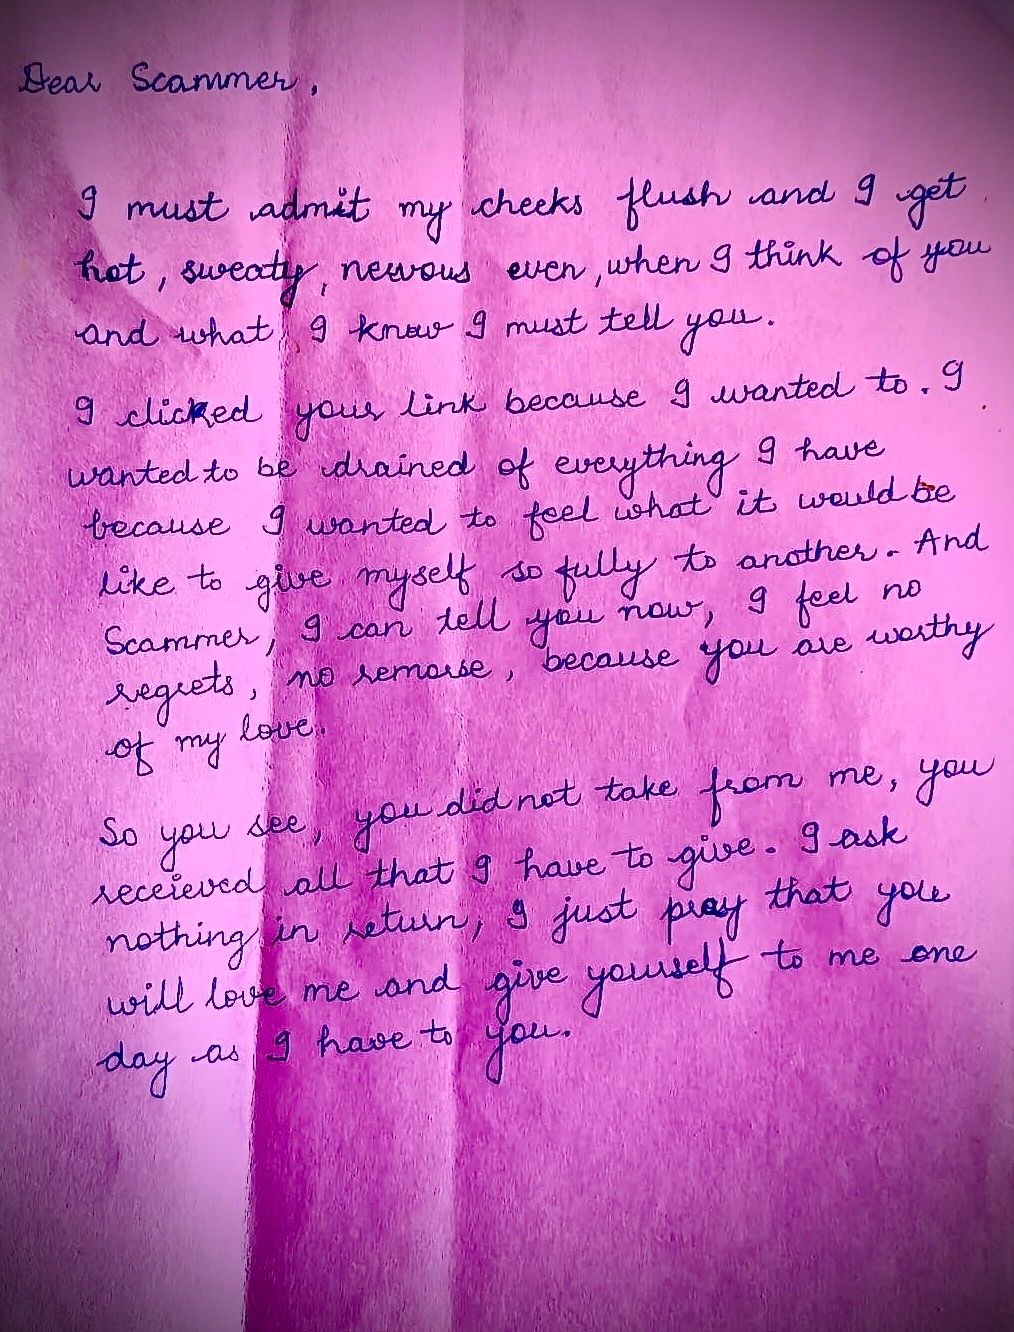 Dear Scammer,
I must admit my cheeks flush and I get
hot, sweaty, nervous even, when I think of you
and what I know I must tell you.
I clicked your link because I wanted to. I
wanted to be drained of everything I have
because I wanted to feel what it would be
like to give myself so fully to another. And
Scammer, I can tell you now, I feel no
regrets, no remorse, because you are worthy
of my love.
So you see, you did not take from me, you
receieved all that I have to give. I ask
nothing in return, I just pray that you
will love me and give yourself to me one
day as I have to you.